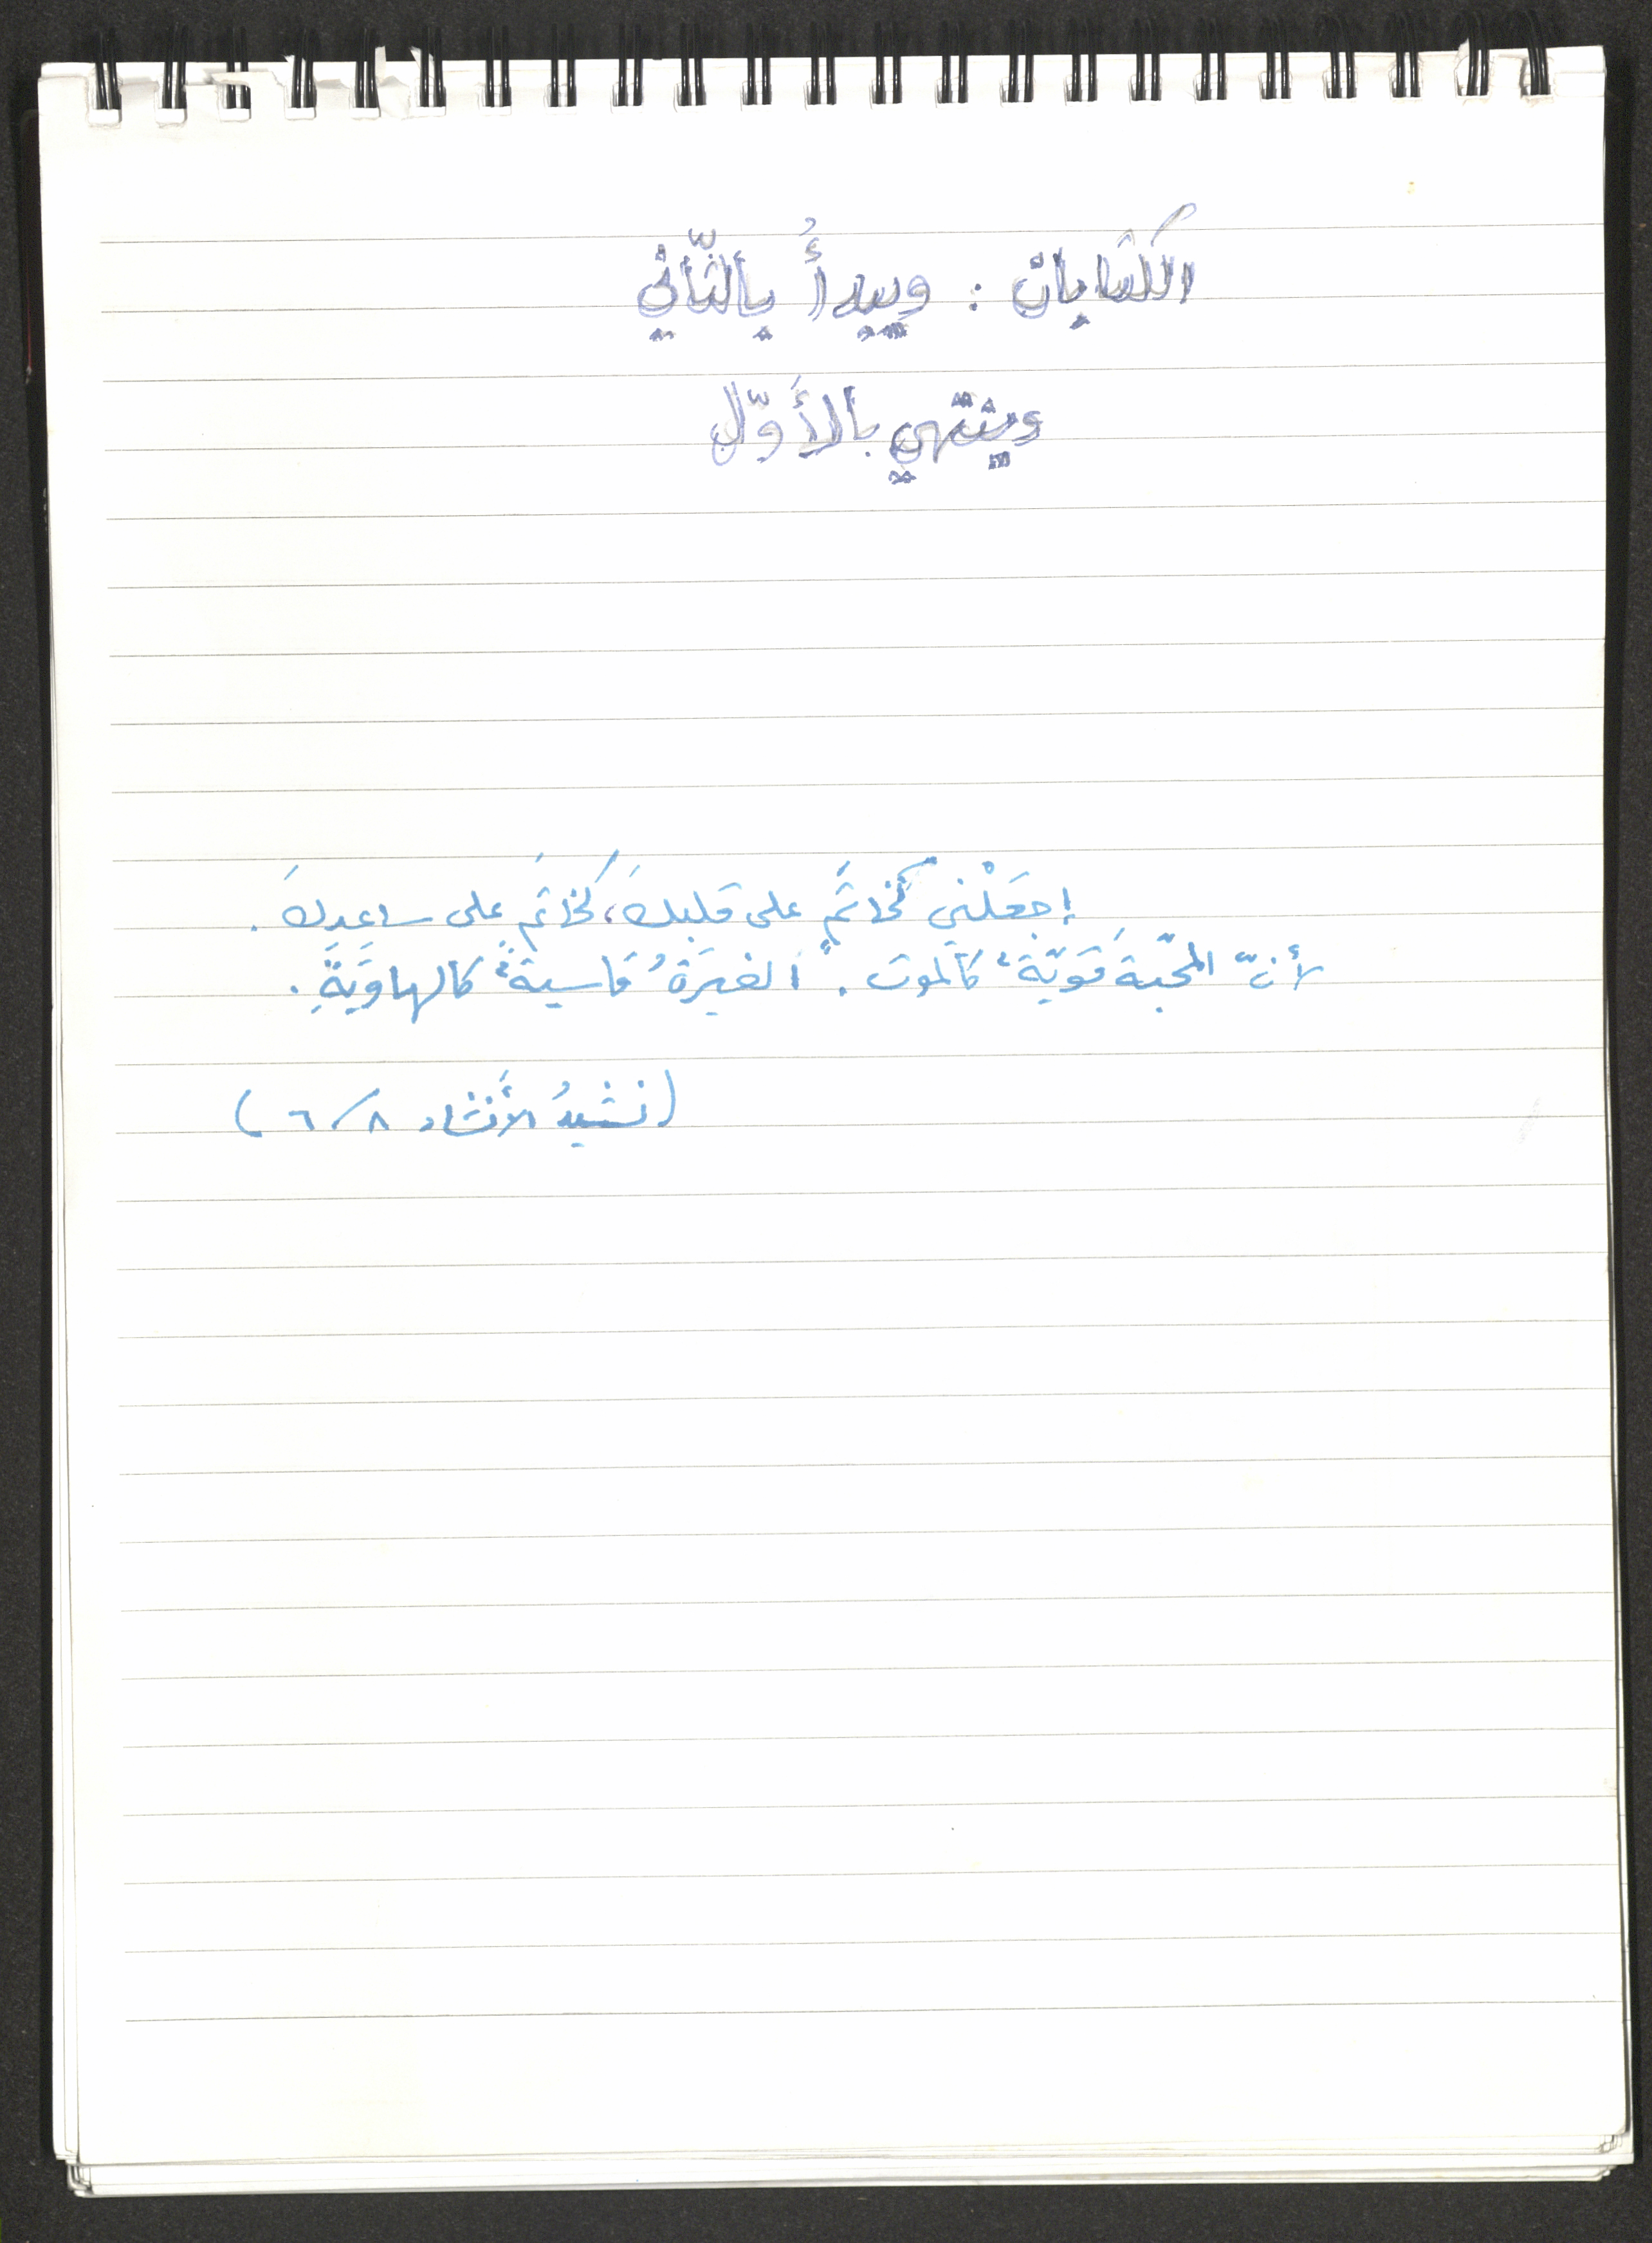 الكتابان : ويبدأُ بالثّاني
وينتهي بالأَوّل
إجعَلْني كَخاتَمٍ على قلبكَ، كَخاتَمٍ على ساعدكَ.
لأنّ المحبّةَ قَويّةٌ كالموت. الغيَرَةُ قاسيةٌ كالهاوِيَةِ.
(نشيدُ الأَنشاد ٨/٦)